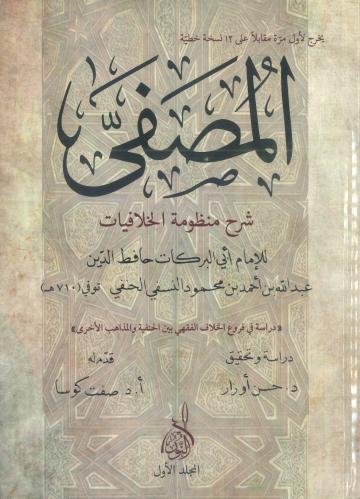 يخرج لأول مرة مقابلاً على ١٢ نسخة خطيّة
المُصَفَّى
شرح منظومة الخلافيات
للإمام أبي البركات حافظ الدّين
عبدالله بن أحمد بن محمود النسفي الحنفي توفي (٧١٠هـ)
«دراسة في فروع الخلاف الفقهي بين الحنفية والمذاهب الأخرى»
دراسة وتحقيق
د. حسن أوزار
قدّم له
أ. د. صفت كوسا
النور
المجلد الأول